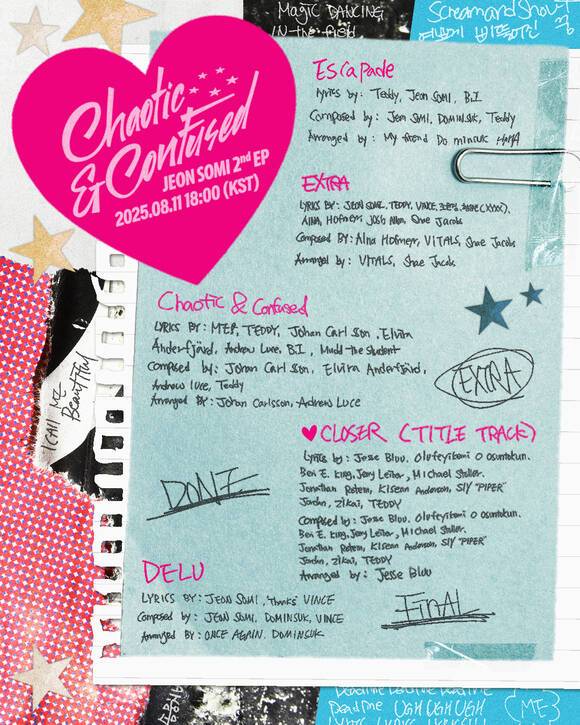 Magic DANCING
IN the field
Screamandshout
Chaotic
& Confused
JEON SOMI 2nd EP
2025.08.11 18:00 (KST)
Escapade
Lyrics by: Teddy, Jeon SOMI, B.I
Composed by: Jeon SOMI, DOMINSUK, Teddy
Arranged by: My friend Do minsuk HAHA
EXTRA
LYRICS BY: JEON SOMI, TEDDY, VINCE,
AlNA, Hofmeyr, Shae Jacobs
Composed BY: Alna Hofmeyr, VITALS, Shae Jacobs
Arranged by: VITALS, Shae Jacobs
Chaotic & Confused
LYRICS BY: TEDDY, Johan Carlsson, Elvira
Anderfjärd, Andrew Luce, B.I, Mudd the student
Composed by: Johan Carlsson, Elvira Anderfjärd,
Andrew luce, Teddy
Arranged BY: Johan Carlsson, Andrew Luce
EXTRA
I CALL ME
BEAUTIFUL
♥CLOSER (TITLE TRACK)
Lyrics by: Jesse Bluu. Olufeyikemi O Osuntokun.
Ben E. King, Jerry Leiber, Michael Stoller.
Jonathan Rotem, Kisean Anderson, SLY "PIPER"
Jordan, Zikai, TEDDY
Composed by: Jesse Bluu. Olufeyikemi O Osuntokun.
Ben E. King, Jerry Leiber, Michael Stoller.
Jonathan Rotem, Kisean Anderson, SLY "PIPER"
Jordan, Zikai, TEDDY
Arranged by: Jesse Bluu
DONE
DELU
LYRICS BY: JEON SOMI, Thanks VINCE
Composed by: JEON SOMI, DOMINSUK, VINCE
Arranged BY: ONCE AGAIN. DOMINSUK
FINAL
Deadline Deadline Deadline
Deadline UGH UGH UGH
{ME}